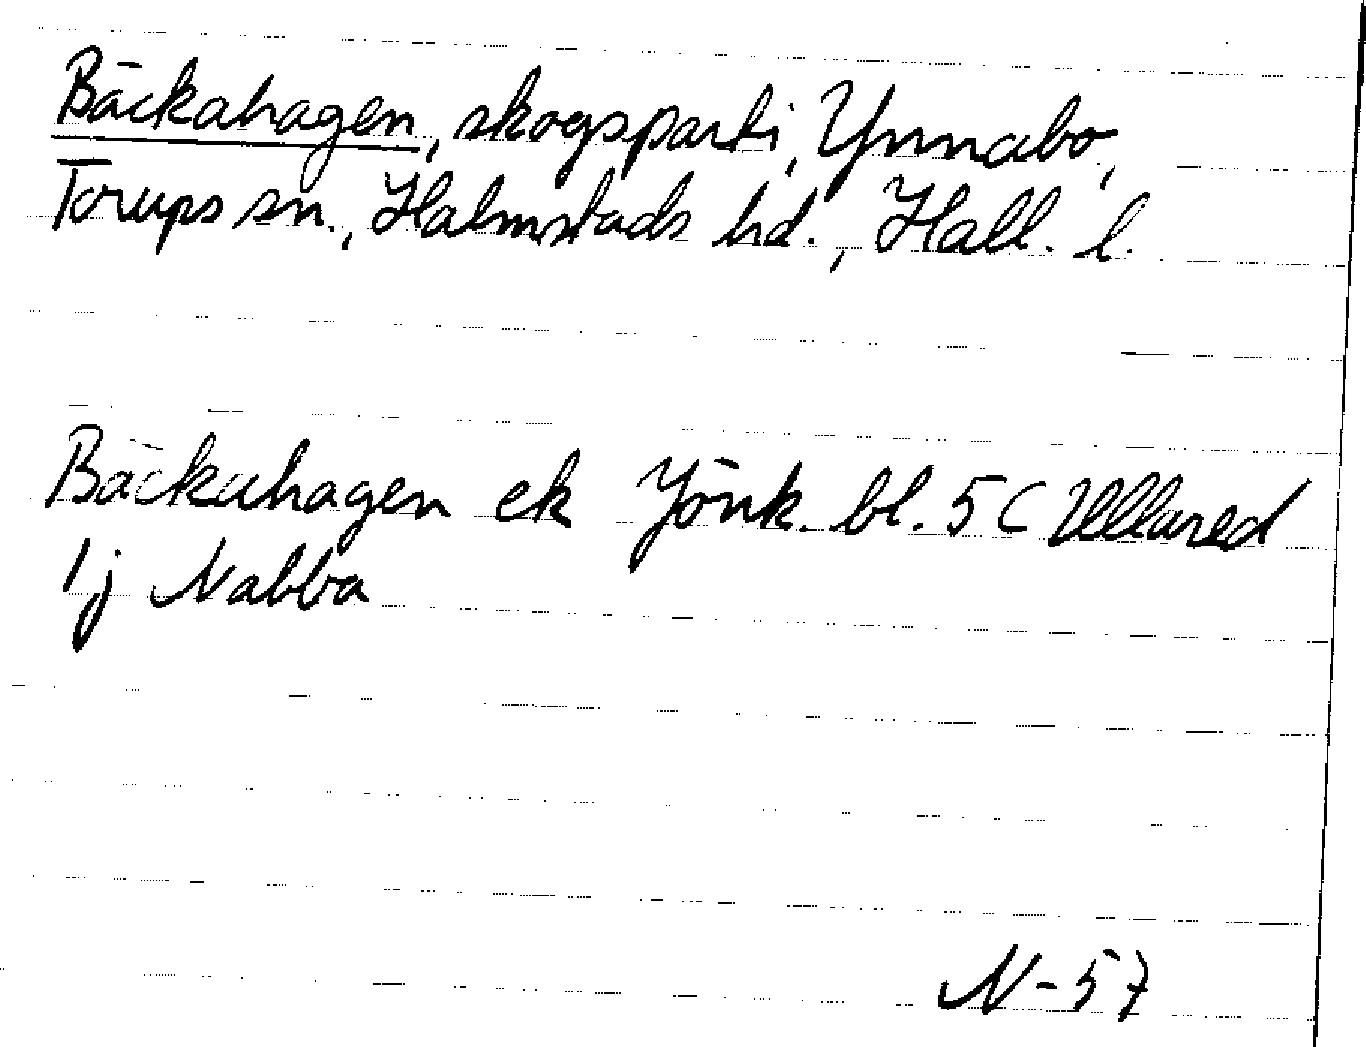 Bäckahagen, skogsparti, Ynnabo,
Torups sn., Halmstads hd., Hall. l.
Bäckahagen ek Jönk. bl. 5C Ullared
1j Nabba
N-57